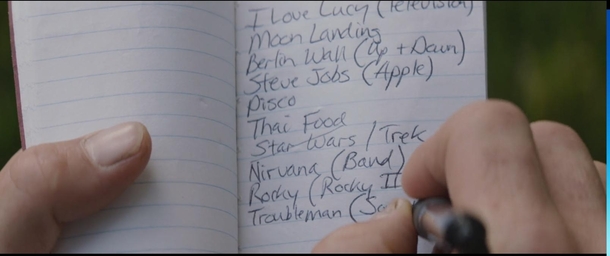 I Love Lucy (Television)
Moon Landing
Berlin Wall (Up + Down)
Steve Jobs (Apple)
Disco
Thai Food
Star Wars / Trek
Nirvana (Band)
Rocky (Rocky II
Troubleman (So